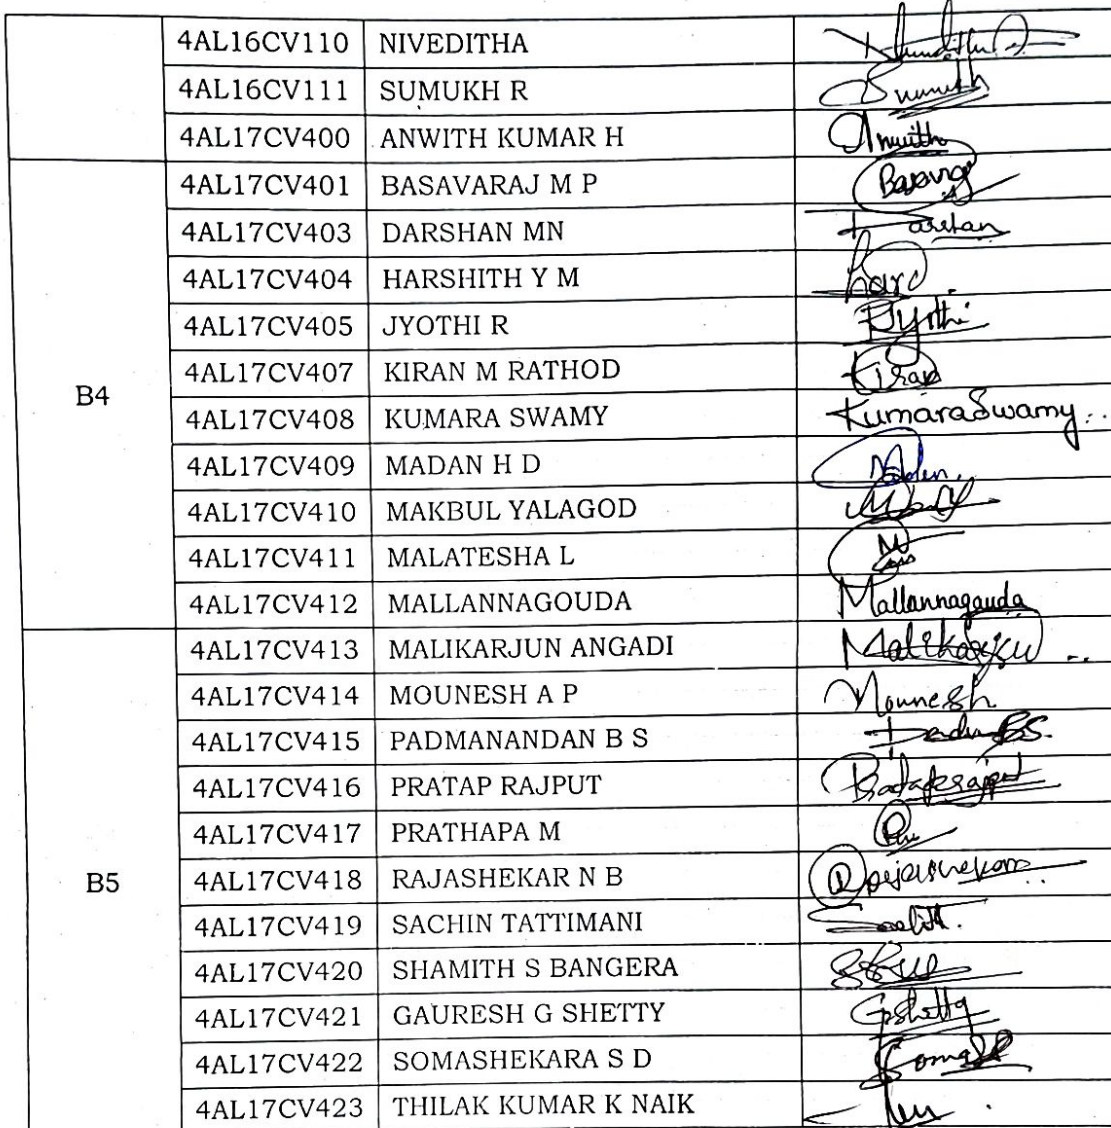 4AL16CV110 NIVEDITHA
4AL16CV111 SUMUKH R Sumukh
4AL17CV400 ANWITH KUMAR H Anwith
4AL17CV401 BASAVARAJ M P Basavaraj
4AL17CV403 DARSHAN MN Darshan
4AL17CV404 HARSHITH Y M
4AL17CV405 JYOTHI R Jyothi
4AL17CV407 KIRAN M RATHOD Kiran
B4 4AL17CV408 KUMARA SWAMY KumaraSwamy..
4AL17CV409 MADAN H D Madan.
4AL17CV410 MAKBUL YALAGOD
4AL17CV411 MALATESHA L
4AL17CV412 MALLANNAGOUDA Mallannagouda
4AL17CV413 MALIKARJUN ANGADI
4AL17CV414 MOUNESH A P Mounesh
4AL17CV415 PADMANANDAN B S
4AL17CV416 PRATAP RAJPUT
4AL17CV417 PRATHAPA M
B5 4AL17CV418 RAJASHEKAR N B
4AL17CV419 SACHIN TATTIMANI
4AL17CV420 SHAMITH S BANGERA
4AL17CV421 GAURESH G SHETTY GShetty
4AL17CV422 SOMASHEKARA S D
4AL17CV423 THILAK KUMAR K NAIK